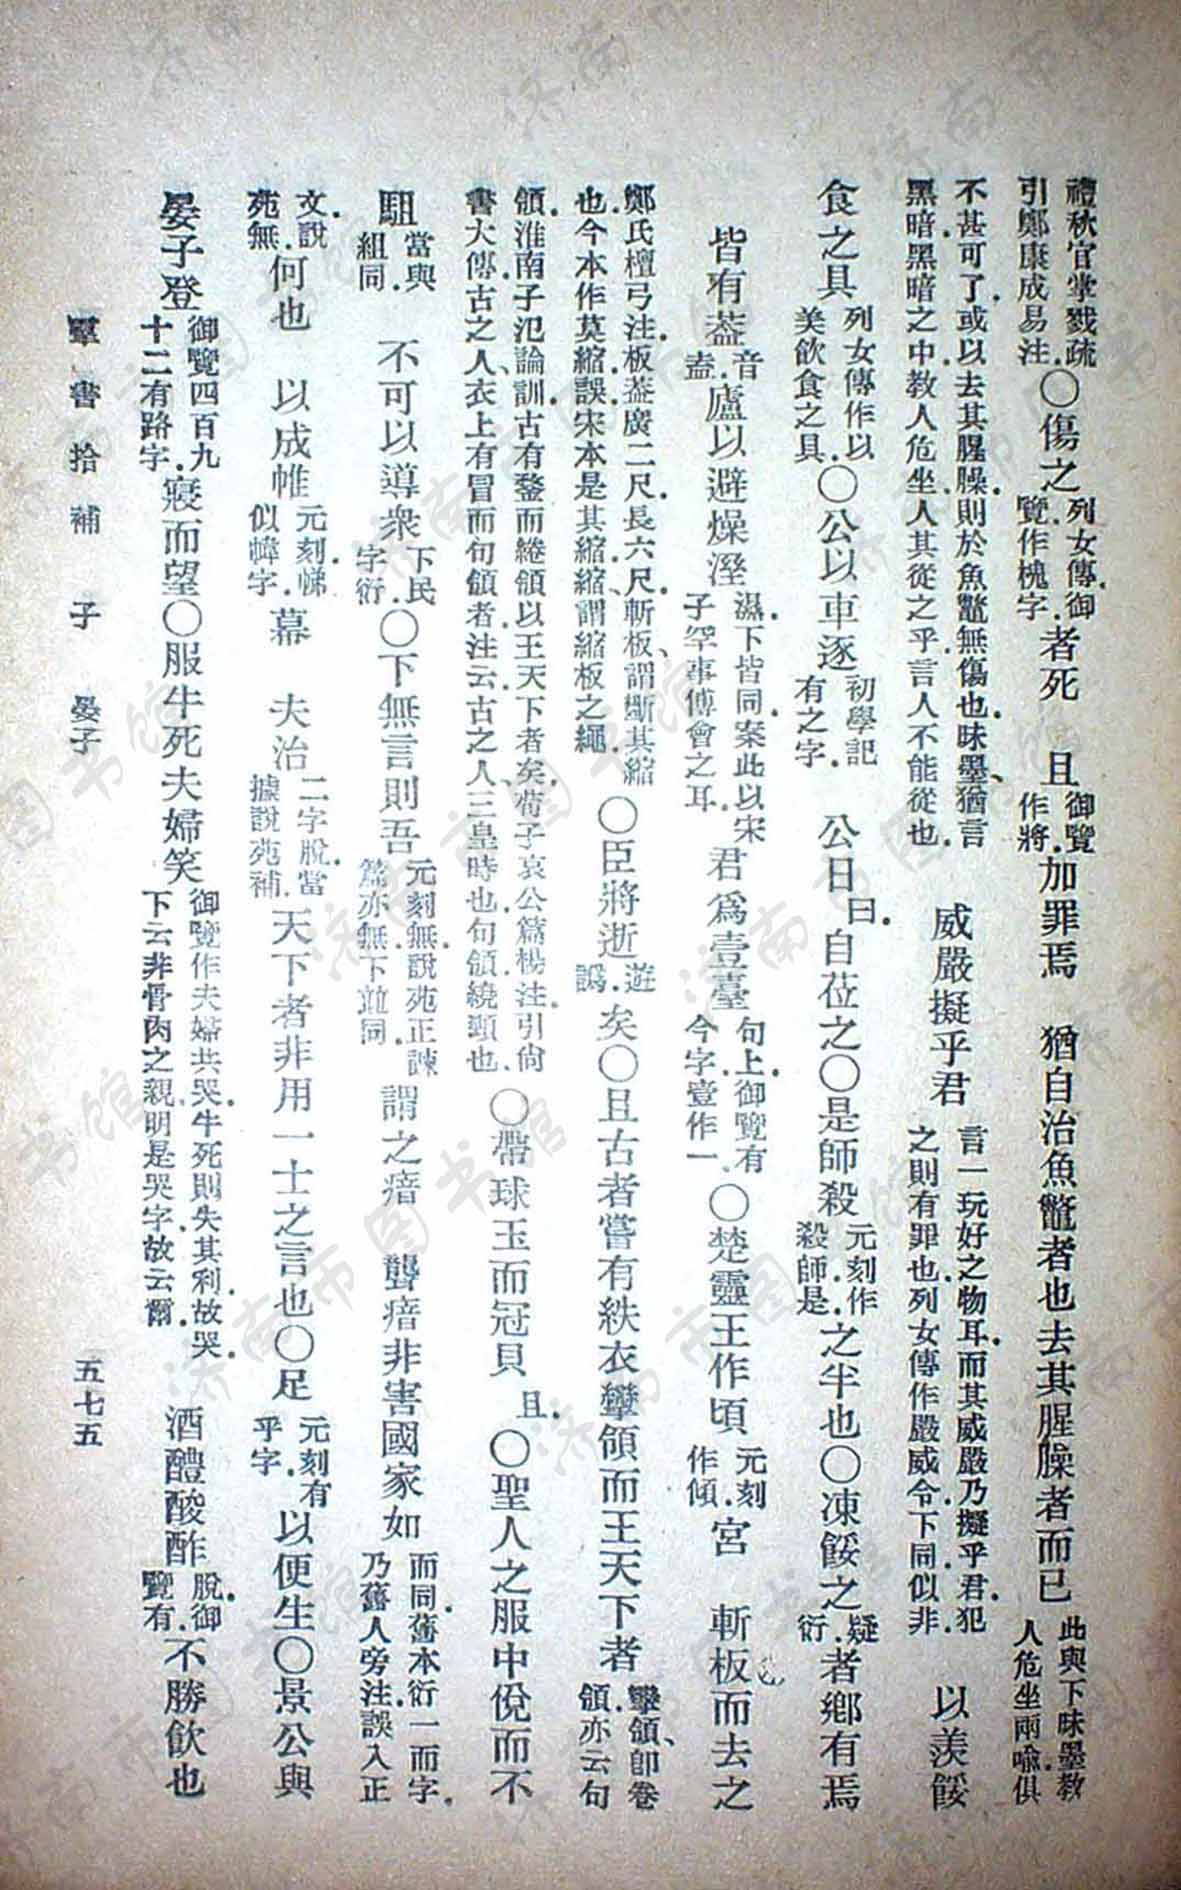 禮秋官掌戮疏引鄭康成易注.〇傷之列女傳.御覽作槐字.者死　且御覽作將.加罪焉　猶自治魚鼈者也去其腥臊者而已此與下昧墨教人危坐兩喩.俱
不甚可了.或以去其腥臊.則於魚鼈無傷也.昧墨猶言黑暗.黑暗之中.教人危坐.人其從之乎.言人不能從也.威嚴擬乎君言一玩好之物耳.而其威嚴乃擬乎君.犯之則有罪也.列女傳作嚴威令.下同.似非.以羨餒
食之具列女傳作以美飲食之具.〇公以車逐初學記有之字.公日曰.自莅之〇是師殺元刻作殺師是.之半也〇凍餒之疑衍.者鄉有焉
皆有葢音盍.廬以避燥溼濕.下皆同.案此以宋子罕事傅會之耳.君爲壹臺句上御覽有今字.壹作一.〇楚靈王作頃元刻作傾.宮　斬板而去之
鄭氏檀弓注.板葢廣二尺.長六尺.斬板.謂斷其縮也.今本作莫縮.誤.宋本是其縮.縮.謂縮板之繩.〇臣將逝遊譌.矣〇且古者嘗有紩衣攣領而王天下者攣領.卽卷領.亦云句
領.淮南子氾論訓.古有鍪而綣領以王天下者矣.荀子哀公篇楊注.引尙書大傳.古之人.衣上有冒而句領者.注云.古之人.三皇時也.句領.繞頸也.〇帶球玉而冠貝　且.〇聖人之服中侻而不
駔當與組同.不可以導衆下民字衍.〇下無言則吾元刻無.說苑正諫篇亦無.下竝同.謂之瘖　聾瘖非害國家如而同.舊本衍一而字.乃舊人旁注.誤入正
文.說苑無.何也　以成帷元刻悌.似幃字.幕　夫治二字脫.當據說苑補.天下者非用一士之言也〇足元刻有乎字.以便生〇景公與
晏子登御覽四百九十二有路字.寢而望〇服牛死夫婦笑御覽作夫婦共哭.牛死則失其利.故哭.下云非骨肉之親.明是哭字.故云爾.酒醴酸酢脫.御覽有.不勝飲也
羣書拾補　子　晏子　五七五